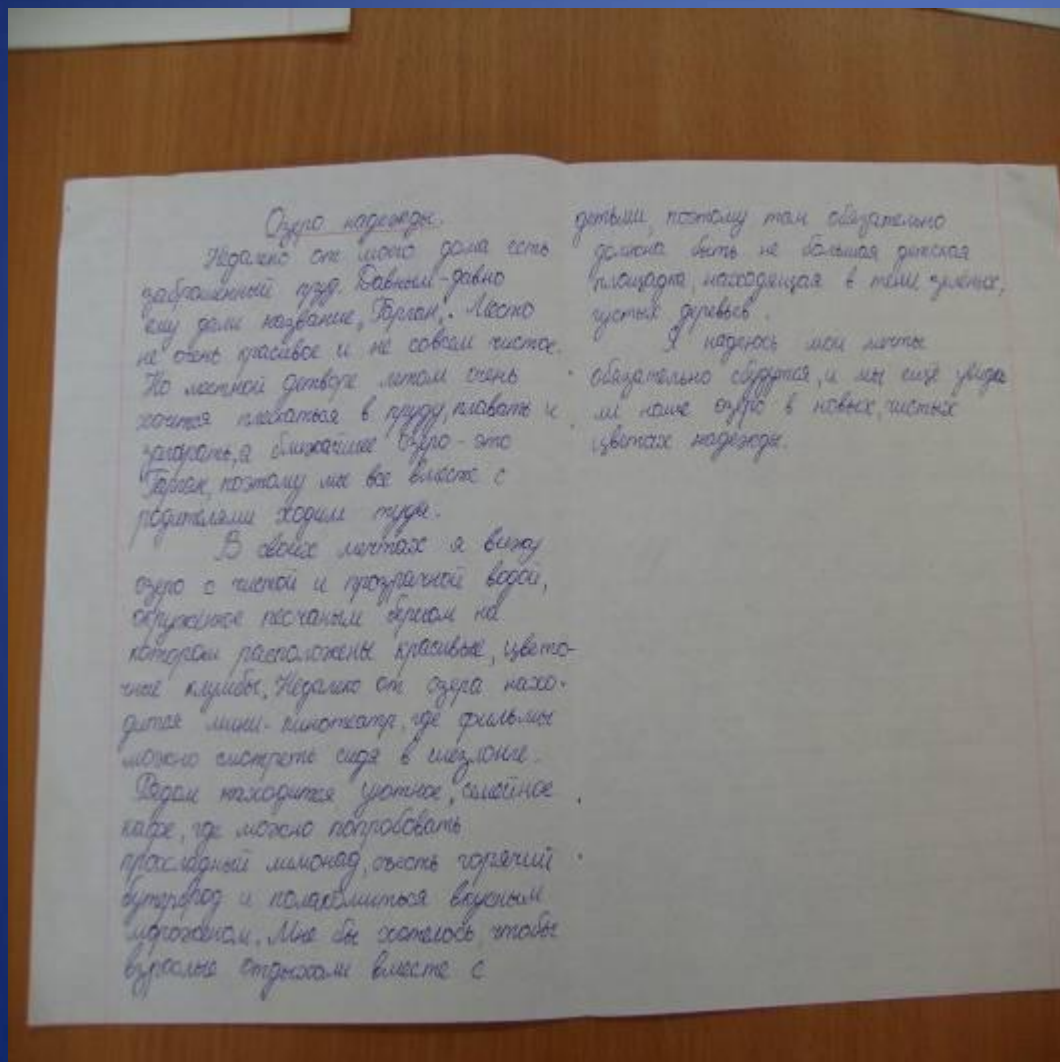 Озеро надежды.
Недалеко от моего дома есть
заброшенный пруд. Давным-давно
ему дали название „Гарган„. Место
не очень красивое и не совсем чистое.
Но местной детворе летом очень
хочется плескаться в пруду, плавать и
загорать, а ближайшее озеро - это
Гарган, поэтому мы все вместе с
родителями ходим туда.
В своих мечтах я вижу
озеро с чистой и прозрачной водой,
окружённое песчаным берегом на
котором расположены красивые, цвето-
чные клумбы. Недалеко от озера нахо-
дится мини-кинотеатр, где фильмы
можно смотреть сидя в шезлонге.
Рядом находится уютное, семейное
кафе, где можно попробовать
прохладный лимонад, съесть горячий
бутерброд и полакомиться вкусным
мороженом. Мне бы хотелось, чтобы
взрослые отдыхали вместе с
детьми, поэтому там обязательно
должна быть не большая детская
площадка, находящая в тени зелёных,
густых деревьев.
Я надеюсь мои мечты
обязательно сбудутся, и мы ещё увиди
м наше озеро в новых, чистых
цветах надежды.